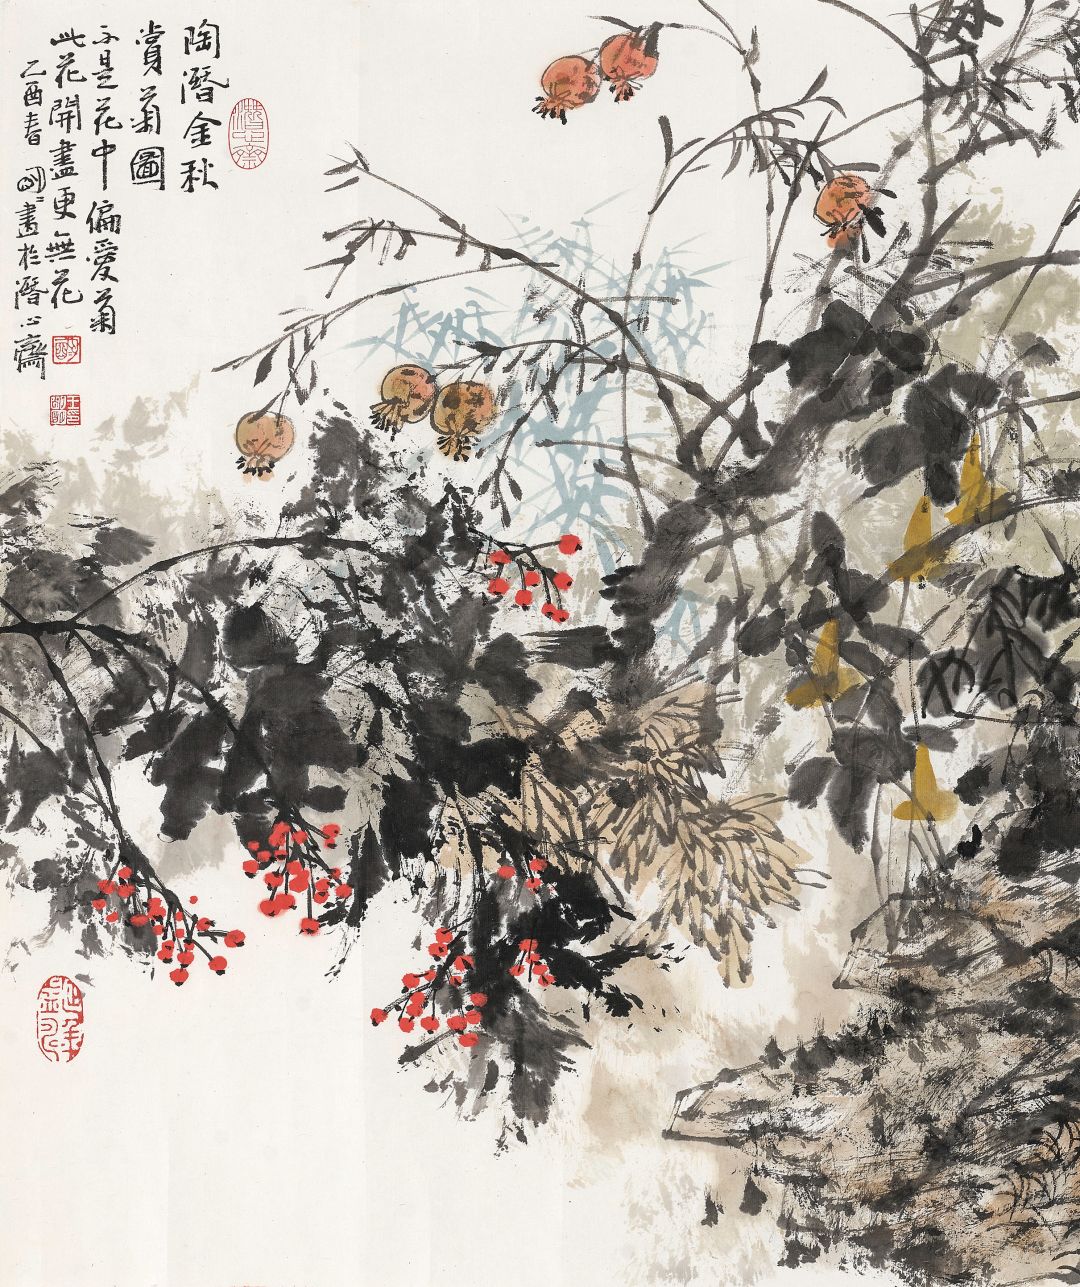 陶潛金秋
賞菊圖
不是花中偏愛菊
此花開盡更無花
乙酉春 明明畫於潛心齋
潛心齋